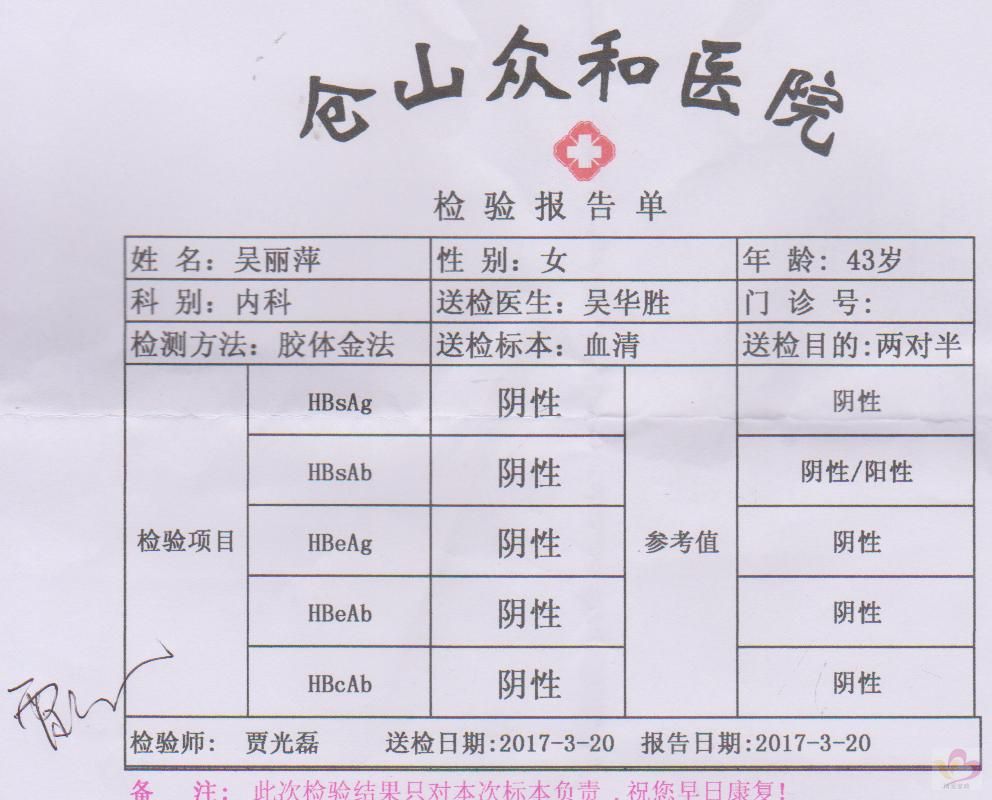 仓山众和医院
检验报告单
姓 名：吴丽萍 性 别：女 年 龄: 43岁
科 别：内科 送检医生：吴华胜 门 诊 号:
检测方法：胶体金法 送检标本：血清 送检目的:两对半
HBsAg 阴性 阴性
HBsAb 阴性 阴性/阳性
检验项目 HBeAg 阴性 参考值 阴性
HBeAb 阴性 阴性
HBcAb 阴性 阴性
检验师: 贾光磊 送检日期:2017-3-20 报告日期:2017-3-20
备 注: 此次检验结果只对本次标本负责，祝您早日康复!